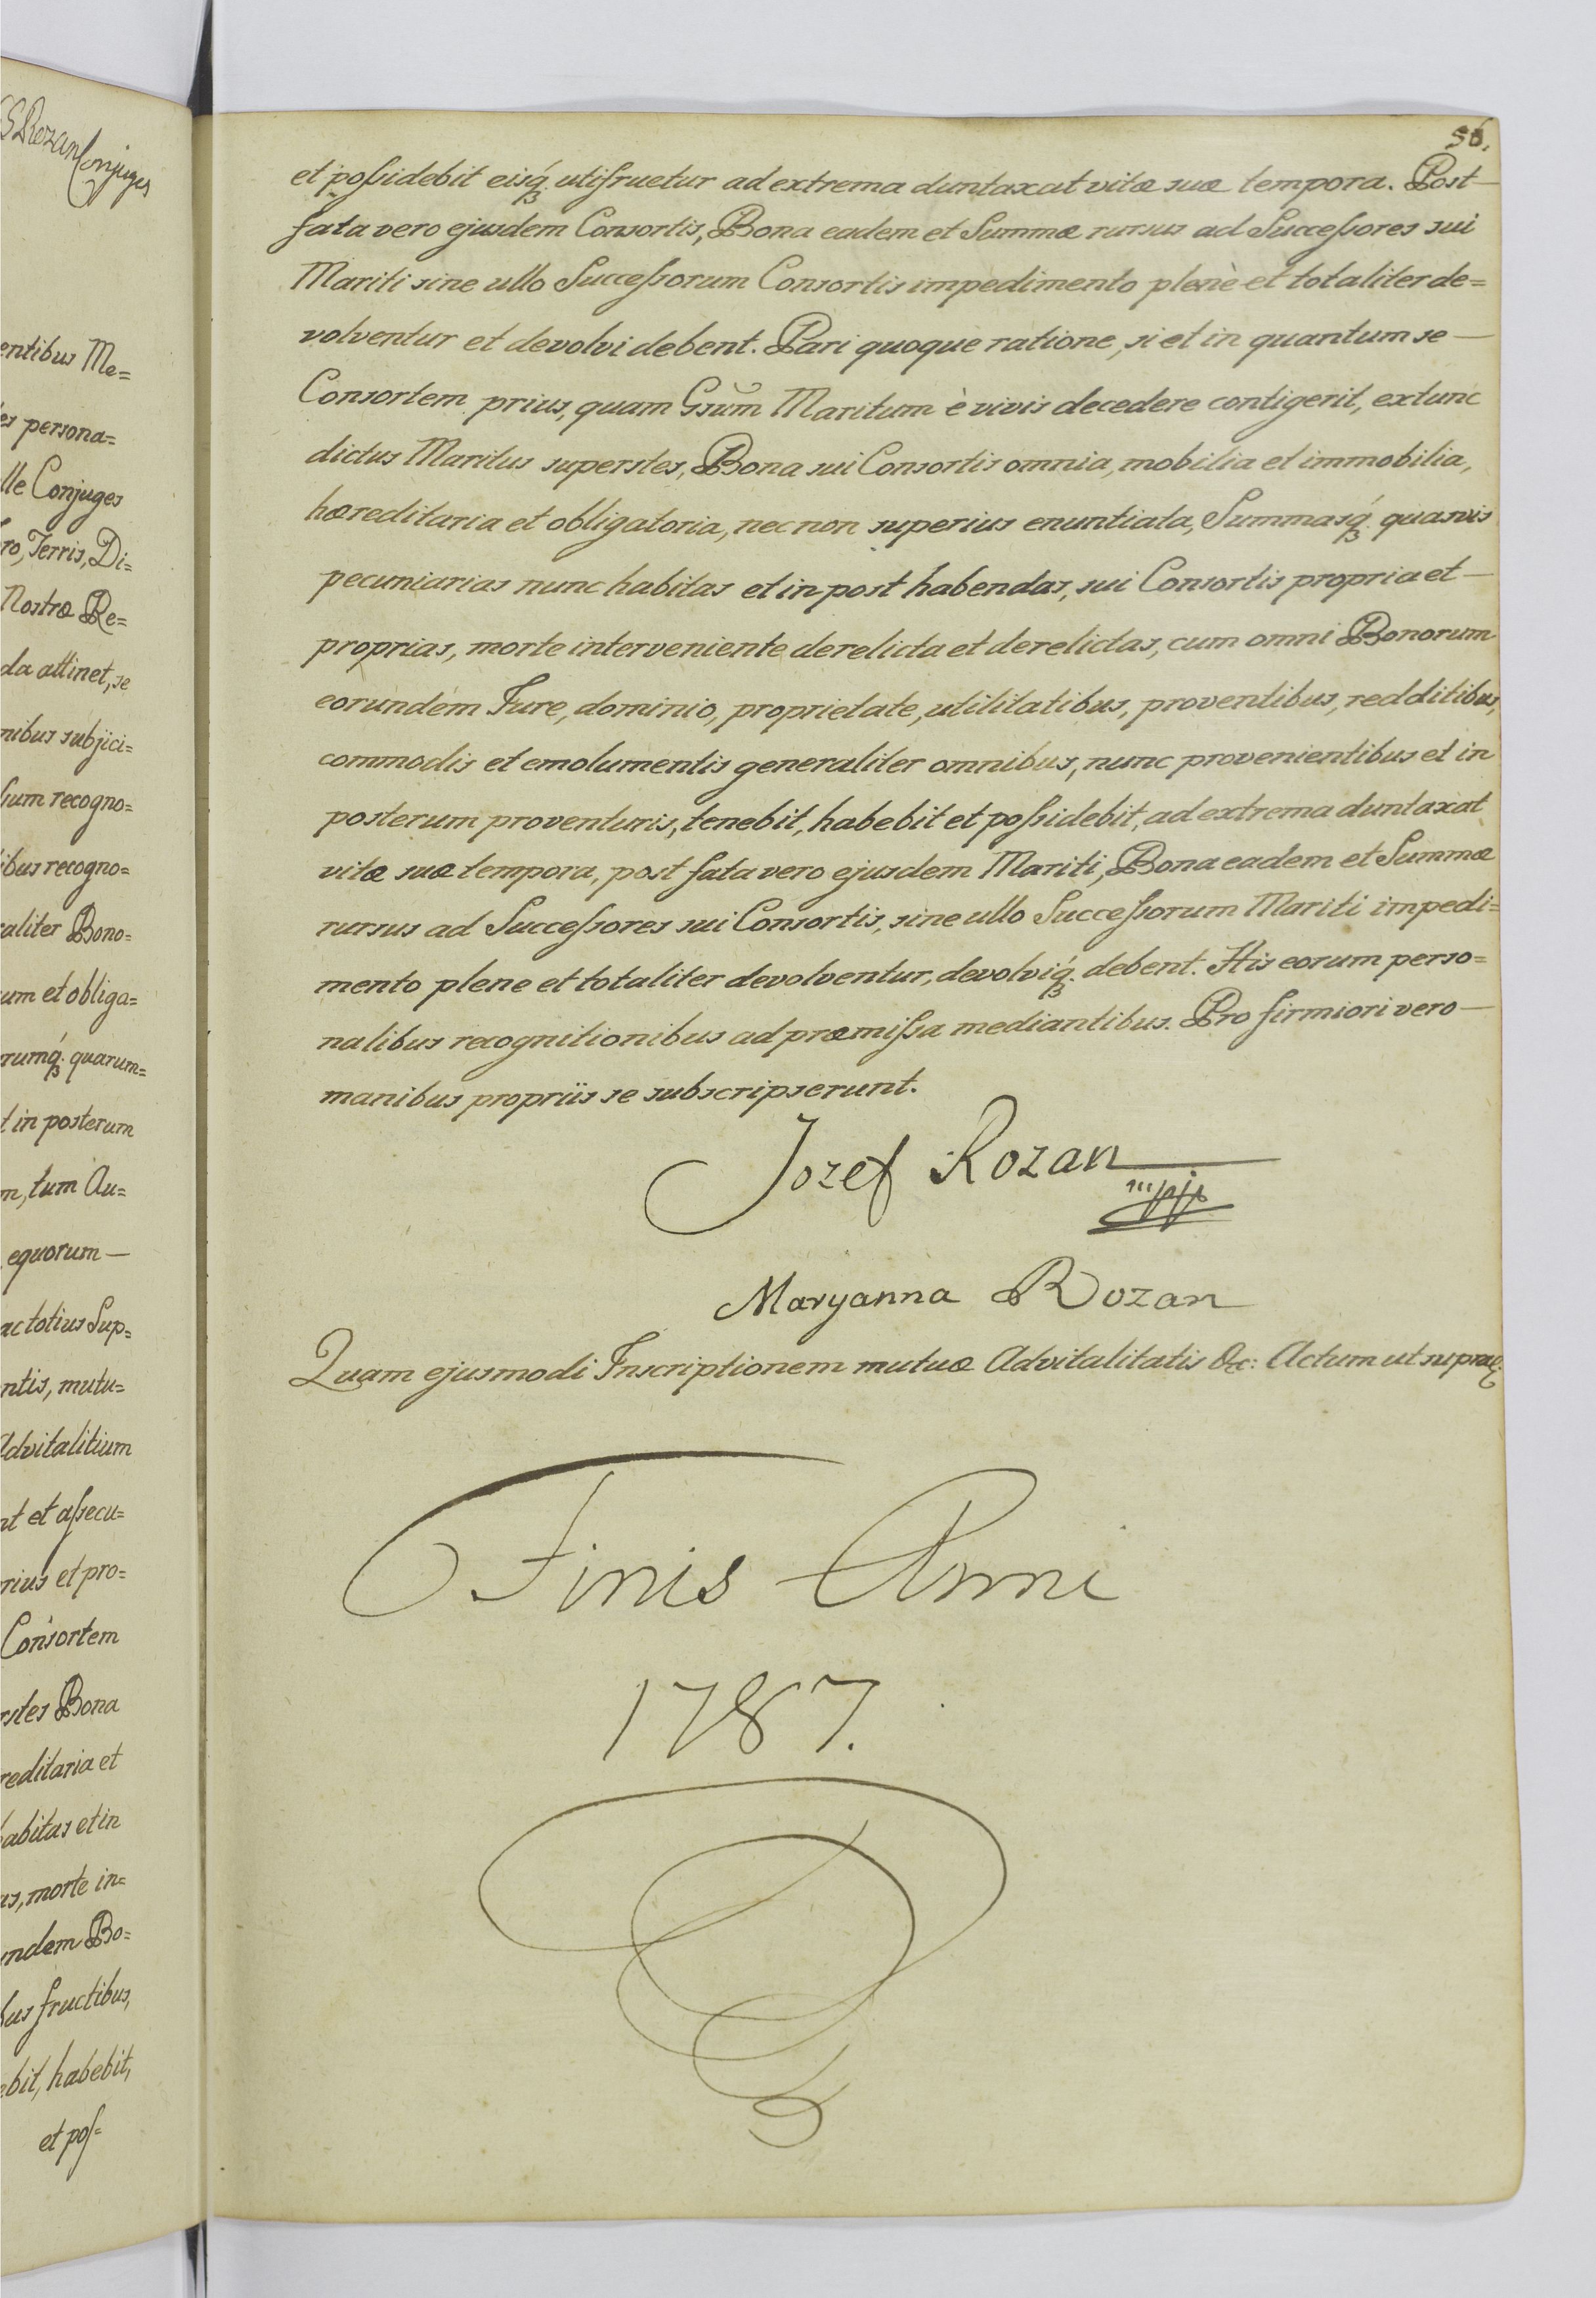 GSRozan Conjuges
entibus Me=
es persona=
lle Conjuges
ro, Terris, Di=
Nostræ Re=
da attinet, se
nibus subjici=
sum recogno=
ibus recogno=
raliter Bono=
um et obliga=
rumq́ꝫ quarum=
t in posterum
m, tum Au=
equorum —
ac totius Sup=
ntis, mutu=
Advitalitium
nt et aſsecu=
rius et pro=
Consortem
rstes Bona
reditaria et
habitas et in
as, morte in=
undem Bo=
bus fructibus,
ebit, habebit,
et poſ=
56.
et poſsidebit eisq́ꝫ utifruetur ad extrema duntaxat vitæ suæ tempora. Post—
fata vero ejusdem Consortis, Bona eadem et Summæ rursus ad Succeſsores sui
Mariti sine ullo Succeſsorum Consortis impedimento plenè et totaliter de=
volventur et devolvi debent. Pari quoque ratione, si et in quantum se —
Consortem prius, quam Gsum̃ Maritum è vivis decedere contigerit, extunc
dictus Maritus superstes, Bona sui Consortis omnia, mobilia et immobilia,
hæreditaria et obligatoria, nec non superius enuntiata, Summasq́ꝫ quasvis
pecuniarias nunc habitas et in post habendas, sui Consortis propria et —
proprias, morte interveniente derelicta et derelictas, cum omni Bonorum
eorundem Jure, dominio, proprietate, utilitatibus, proventibus, redditibus,
commodis et emolumentis generaliter omnibus, nunc provenientibus et in
posterum proventuris, tenebit, habebit et poſsidebit, ad extrema duntaxat
vitæ suæ tempora, post fata vero ejusdem Mariti, Bona eadem et Summæ
rursus ad Succeſsores sui Consortis, sine ullo Succeſsorum Mariti impedi=
mento plene et totaliter devolventur, devolviq́ꝫ debent. His eorum perso=
nalibus recognitionibus ad præmiſsa mediantibus. Pro firmiori vero —
manibus propriis se subscripserunt.
Jozef Rozan
mpp
Maryanna Rozan
Quam ejusmodi Inscriptionem mutuæ Advitalitatis &c: Actum ut supra.
Finis Anni
1787.